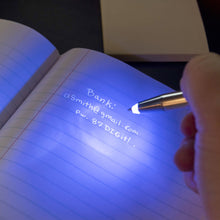 Bank:
asmith@gmail.com
Pw. 87DzGit!